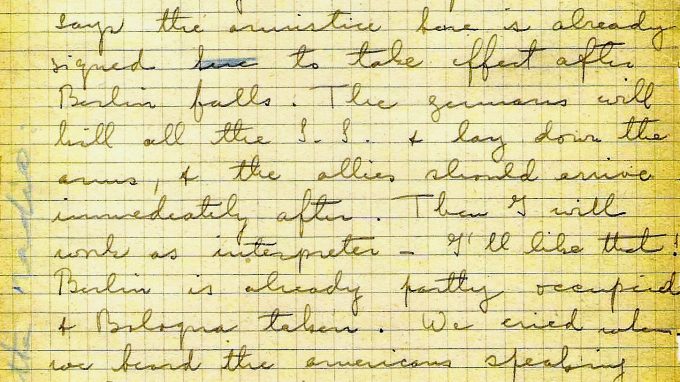 says the armistice here is already
signed here to take effect after
Berlin falls. The germans will
kill all the S.S. & lay down the
arms, & the allies should arrive
immediately after. Then I will
work as interpreter – I'll like that!
Berlin is already partly occupied
& Bologna taken. We cried when
we heard the americans speaking
the radio.